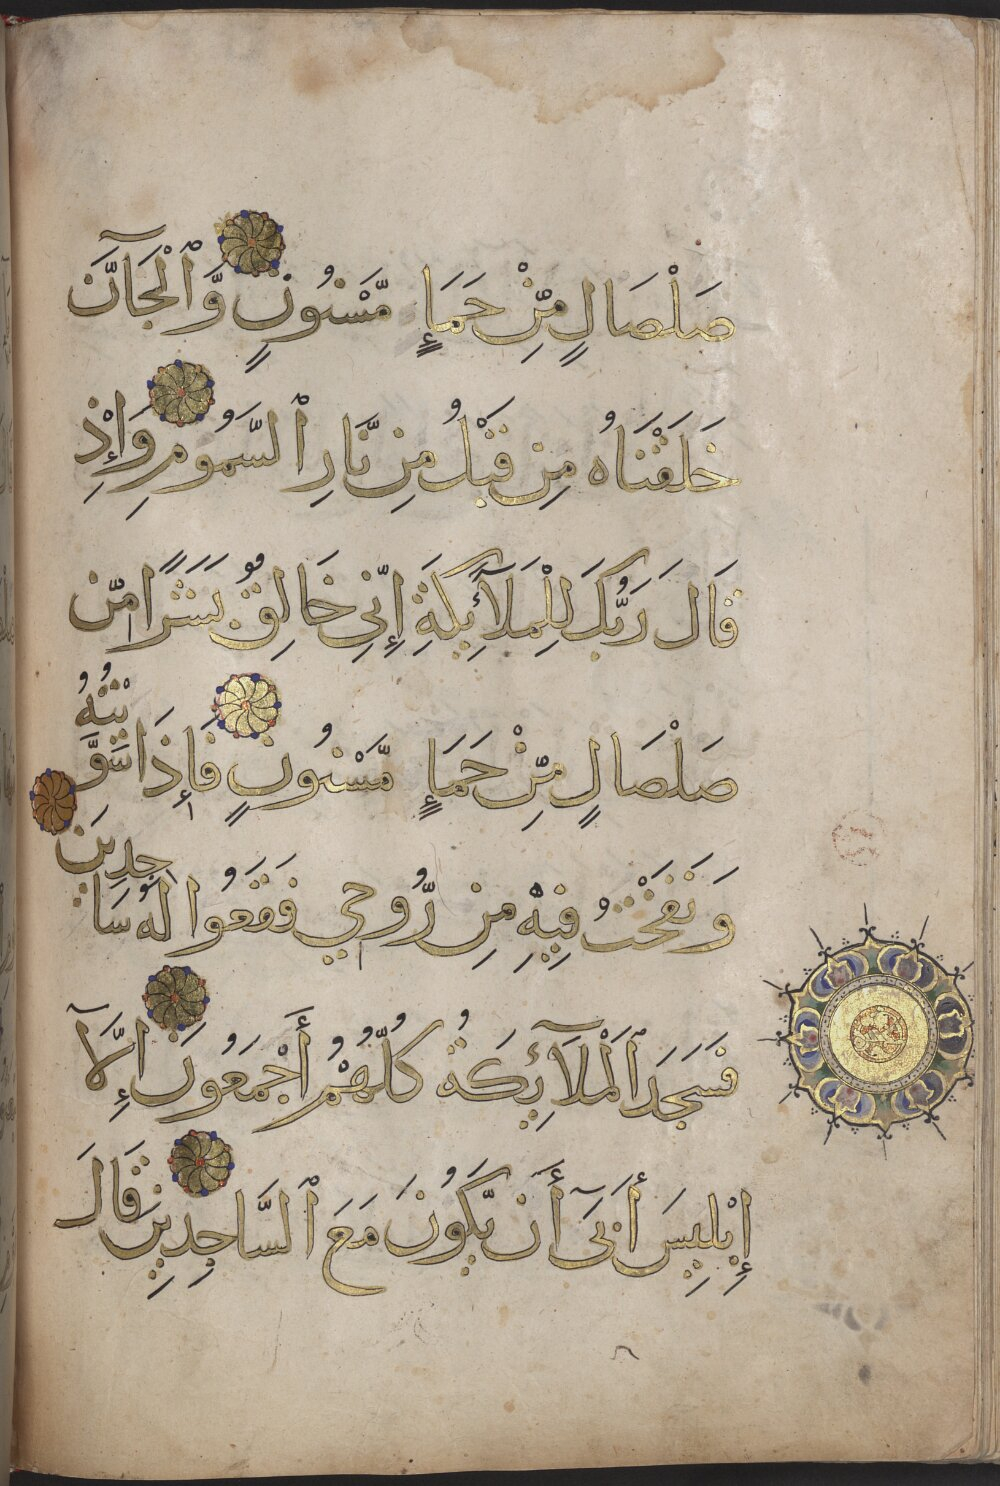 صَلْصَالٍ مِّنْ حَمَإٍ مَّسْنُونٍ وَٱلْجَآنَّ
خَلَقْنَاهُ مِن قَبْلُ مِن نَّارِ ٱلسَّمُومِ وَإِذْ
قَالَ رَبُّكَ لِلْمَلَآئِكَةِ إِنِّي خَالِقٌ بَشَرًا مِّن
صَلْصَالٍ مِّنْ حَمَإٍ مَّسْنُونٍ فَإِذَا سَوَّيْتُهُ
وَنَفَخْتُ فِيهِ مِن رُّوحِي فَقَعُوا لَهُ سَاجِدِينَ
فَسَجَدَ ٱلْمَلَآئِكَةُ كُلُّهُمْ أَجْمَعُونَ إِلَّآ
إِبْلِيسَ أَبَىٓ أَن يَّكُونَ مَعَ ٱلسَّاجِدِينَ قَالَ